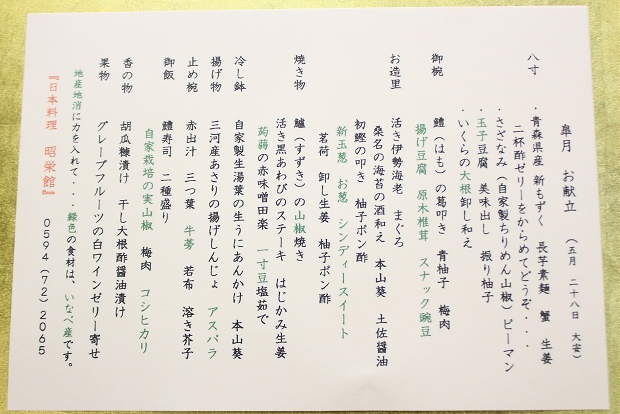 皐月　お献立　（五月　二十八日　大安）
八寸　・青森県産 新もずく　長芋素麺　蟹　生姜
二杯酢ゼリーをからめてどうぞ・・・
・さざなみ（自家製ちりめん山椒）ピーマン
・玉子豆腐　美味出し　振り柚子
・いくらの大根卸し和え
御椀　鱧（はも）の葛叩き　青柚子　梅肉
揚げ豆腐　原木椎茸　スナック豌豆
お造里　活き伊勢海老　まぐろ
桑名の海苔の酒和え　本山葵　土佐醤油
初鰹の叩き　柚子ポン酢
新玉葱　お葱　シンディースイート
茗荷　卸し生姜　柚子ポン酢
焼き物　鱸（すずき）の山椒焼き
活き黒あわびのステーキ　はじかみ生姜
蒟蒻の赤味噌田楽　一寸豆塩茹で
冷し鉢　自家製生湯葉の生うにあんかけ　本山葵
揚げ物　三河産あさりの揚げしんじょ　アスパラ
止め椀　赤出汁　三つ葉　牛蒡　若布　溶き芥子
御飯　鱧寿司　二種盛り
自家栽培の実山椒　梅肉　コシヒカリ
香の物　胡瓜糠漬け　干し大根酢醤油漬け
果物　グレープフルーツの白ワインゼリー寄せ
地産地消に力を入れて・・・緑色の食材は、いなべ産です。
『日本料理　昭栄館』　０５９４（７２）２０６５